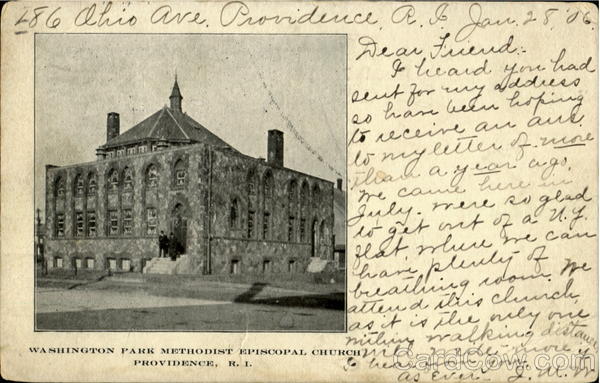 286 Ohio Ave. Providence, R. I. Jan. 28, '06.
Dear Friend:-
I heard you had
sent for my address
so have been hoping
to receive an ans.
to my letter of more
than a year ago.
We came here in
July. were so glad
to get out of a N.Y.
flat, where we can
have plenty of
breathing room. We
attend this church,
as it is the only one
within walking distance
hear
as Ever. J. M.
WASHINGTON PARK METHODIST EPISCOPAL CHURCH
PROVIDENCE, R. I.
CardCow.com